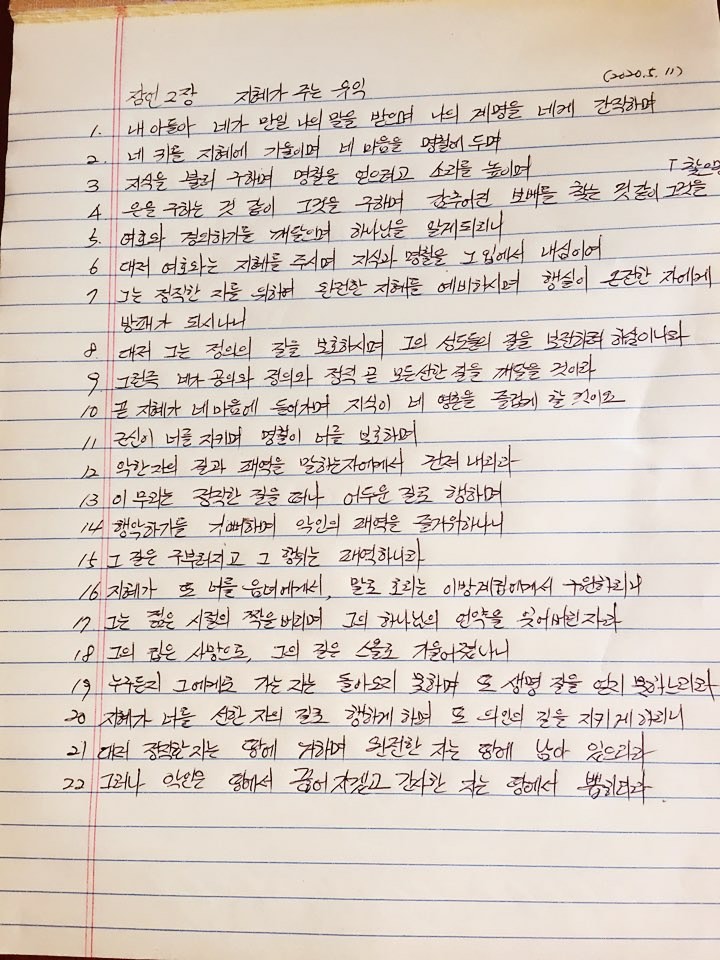 (2020. 5. 11)
잠언 2장 지혜가 주는 유익
1. 내 아들아 네가 만일 나의 말을 받으며 나의 계명을 네게 간직하며
2. 네 귀를 지혜에 기울이며 네 마음을 명철에 두며
3 지식을 불러 구하며 명철을 얻으려고 소리를 높이며
T 찾으면
4 은을 구하는 것 같이 그것을 구하며 감추어진 보배를 찾는 것 같이 그것을
5. 여호와 경외하기를 깨달으며 하나님을 알게되리니
6 대저 여호와는 지혜를 주시며 지식과 명철을 그 입에서 내심이며
7 그는 정직한 자를 위하여 완전한 지혜를 예비하시며 행실이 온전한 자에게
방패가 되시나니
8 대저 그는 정의의 길을 보호하시며 그의 성도들의 길을 보전하려 하심이니라
9 그런즉 네가 공의와 정의와 정직 곧 모든선한 길을 깨달을 것이라
10 곧 지혜가 네 마음에 들어가며 지식이 네 영혼을 즐겁게 할 것이요
11 근신이 너를 지키며 명철이 너를 보호하며
12 악한자의 길과 패역을 말하는자에게서 건져 내리라
13 이 무리는 정직한 길을 떠나 어두운 길로 행하며
14 행악하기를 기뻐하며 악인의 패역을 즐거워하나니
15 그 길은 구부러지고 그 행위는 패역하니라
16 지혜가 또 너를 음녀에게서, 말로 호리는 이방계집에게서 구원하리니
17 그는 젊은 시절의 짝을 버리며 그의 하나님의 언약을 잊어버린자라
18 그의 집은 사망으로, 그의 길은 스올로 기울어졌나니
19 누구든지 그에게로 가는 자는 돌아오지 못하며 또 생명 길을 얻지 못하느니라
20 지혜가 너를 선한 자의 길로 행하게 하며 또 의인의 길을 지키게 하리니
21 대저 정직한 자는 땅에 거하며 완전한 자는 땅에 남아 있으리라
22 그러나 악인은 땅에서 끊어지겠고 간사한 자는 땅에서 뽑히리라